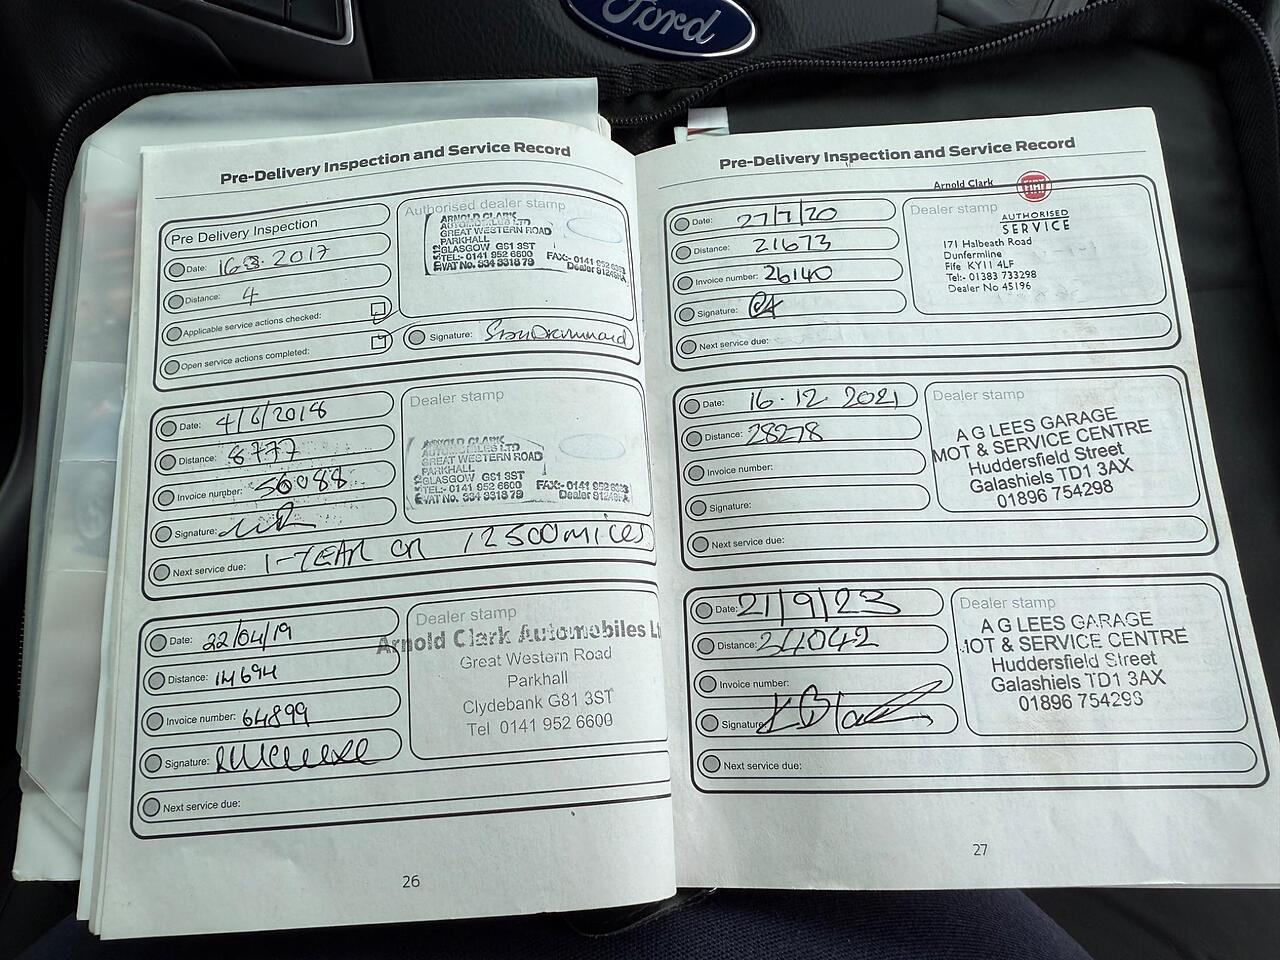 Ford
Pre-Delivery Inspection and Service Record
Pre Delivery Inspection
Date: 16.3.2017
Distance: 4
Applicable service actions checked:
Open service actions completed:
Authorised dealer stamp
ARNOLD CLARK
AUTOMOBILES LTD
GREAT WESTERN ROAD
PARKHALL
GLASGOW GS1 3ST
TEL:- 0141 952 6600
VAT No. 334 9318 79
Signature:
Date: 4/6/2018
Distance: 8777
Invoice number: 56088
Signature:
Next service due: 1-YEAR OR 12500 MILES
Dealer stamp
ARNOLD CLARK
AUTOMOBILES LTD
GREAT WESTERN ROAD
PARKHALL
GLASGOW GS1 3ST
TEL:- 0141 952 6600
VAT No. 334 9318 79
Date: 22/04/19
Distance: 14694
Invoice number: 64899
Signature:
Next service due:
Dealer stamp
Arnold Clark Automobiles Lt
Great Western Road
Parkhall
Clydebank G81 3ST
Tel 0141 952 6600
26
Pre-Delivery Inspection and Service Record
Date: 27/7/20
Distance: 21673
Invoice number: 26140
Signature:
Next service due:
Arnold Clark FIAT
Dealer stamp
AUTHORISED
SERVICE
171 Halbeath Road
Dunfermline
Fife KY11 4LF
Tel:- 01383 733298
Dealer No 45196
Date: 16.12.2021
Distance: 28278
Invoice number:
Signature:
Next service due:
Dealer stamp
A G LEES GARAGE
MOT & SERVICE CENTRE
Huddersfield Street
Galashiels TD1 3AX
01896 754298
Date: 21/9/23
Distance: 34042
Invoice number:
Signature:
Next service due:
Dealer stamp
A G LEES GARAGE
MOT & SERVICE CENTRE
Huddersfield Street
Galashiels TD1 3AX
01896 754298
27